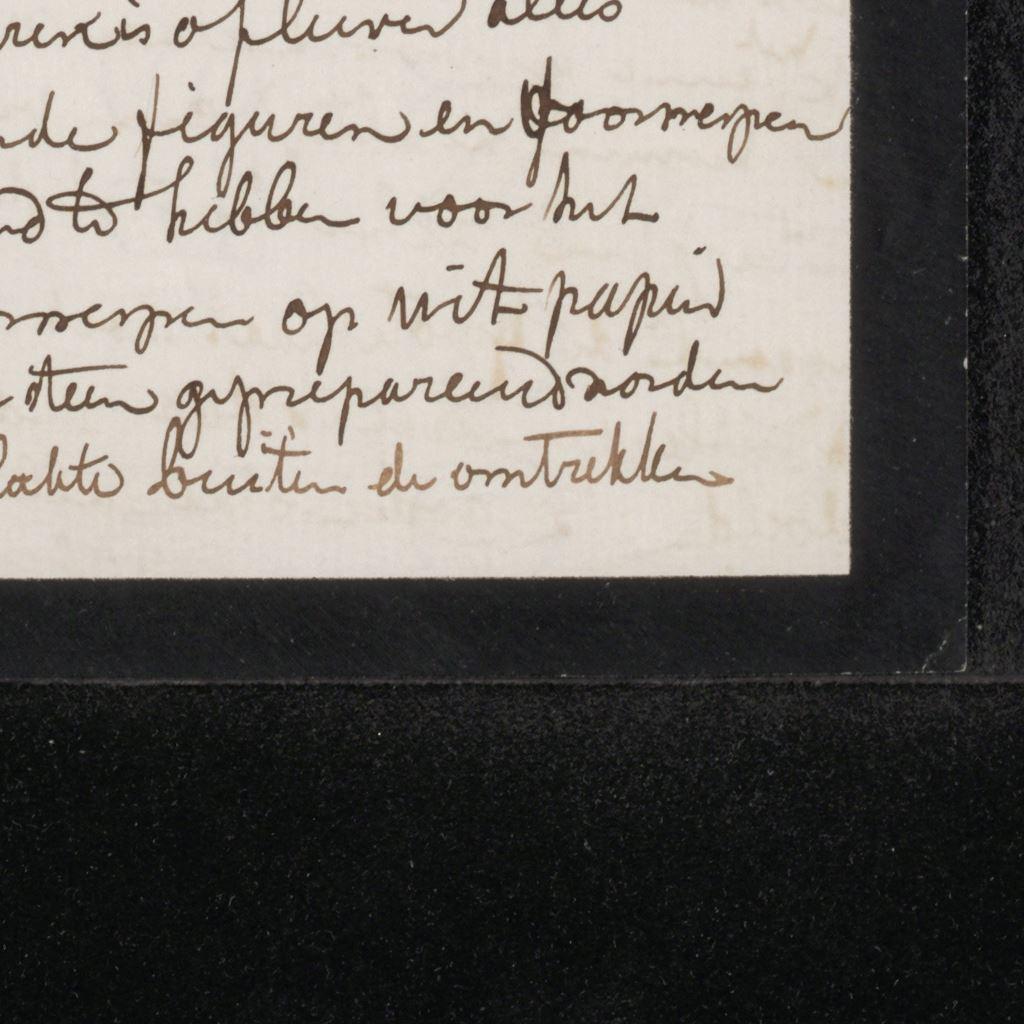 is opluiven alles
nde figuren en voorwerpen
nd te hebben voor het
rwerpen op wit papier
steen geprepareerd worden
buiten de omtrekken